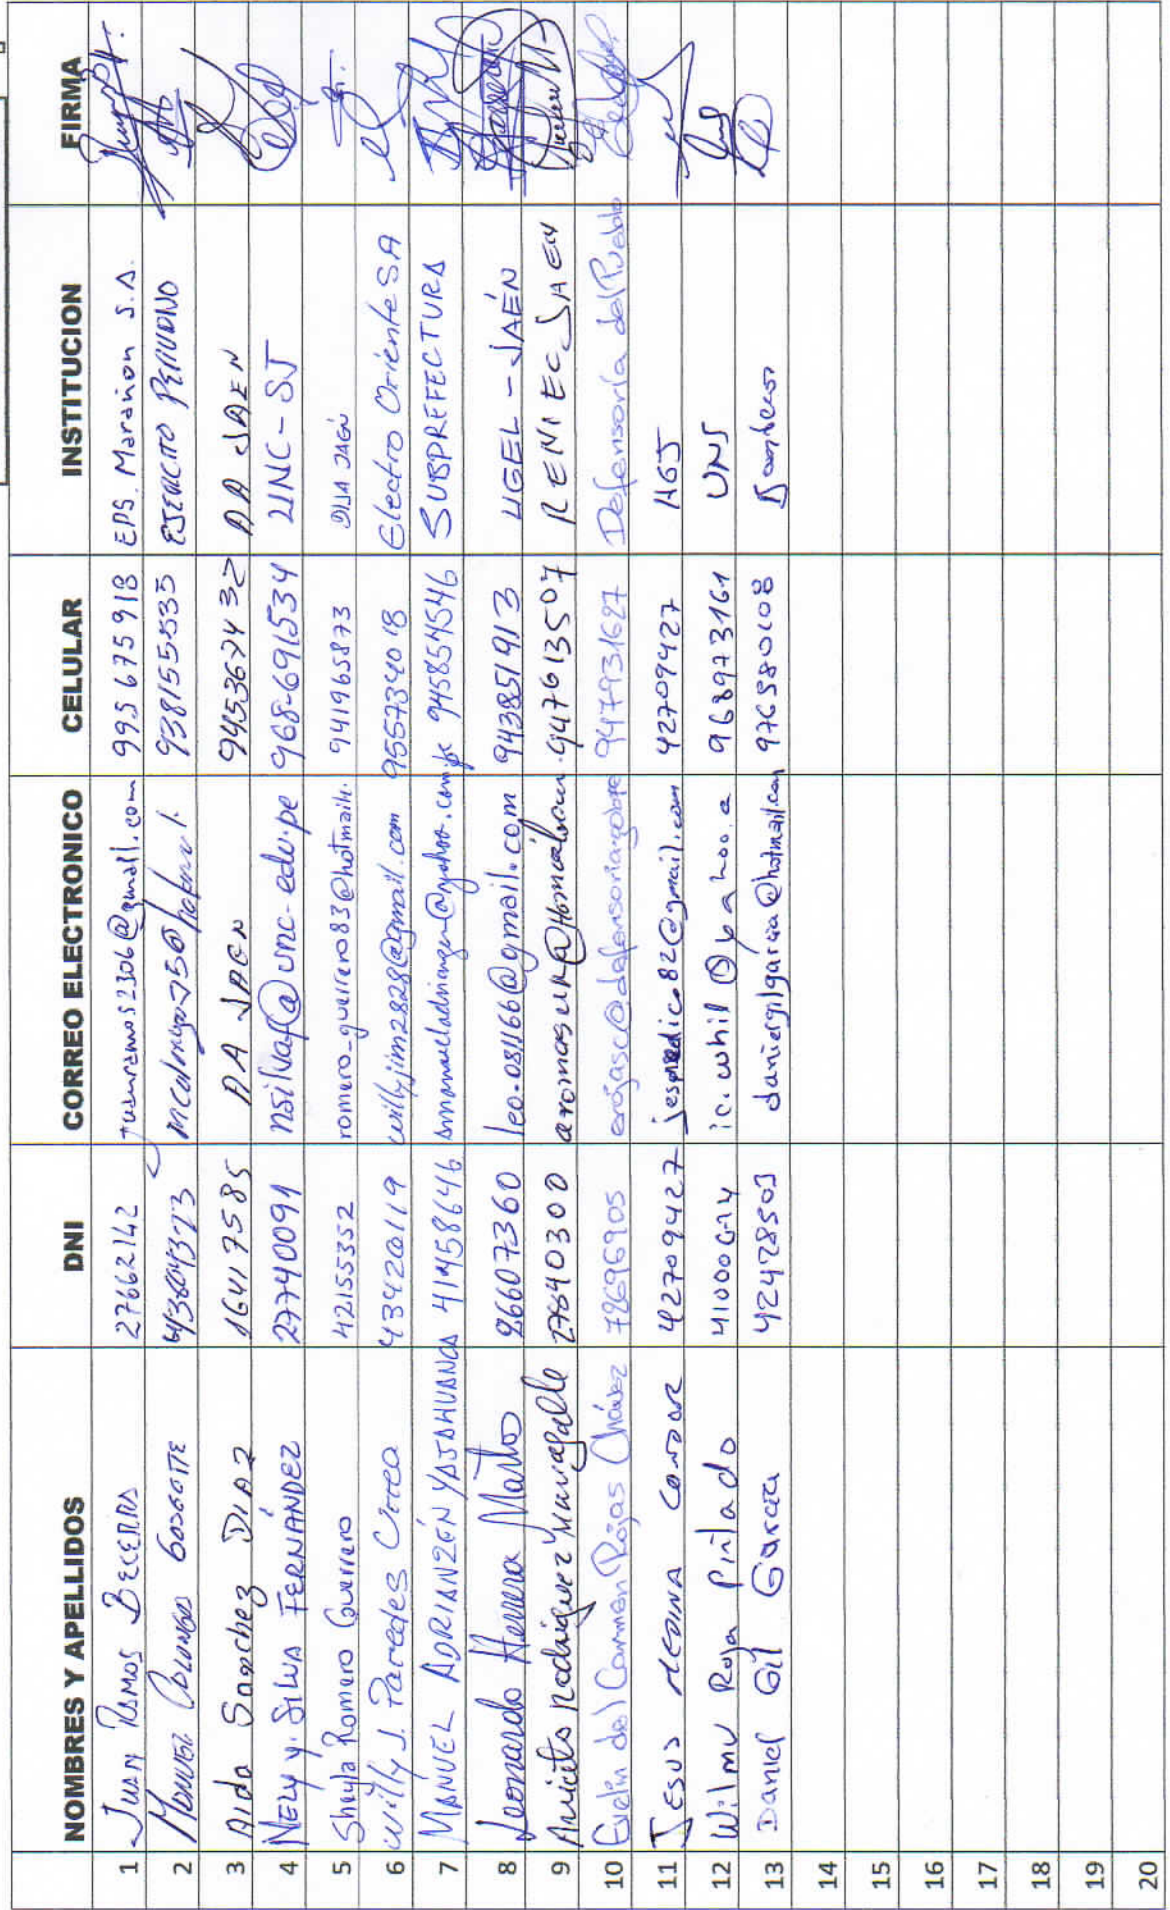 NOMBRES Y APELLIDOS DNI CORREO ELECTRONICO CELULAR INSTITUCION FIRMA
1 Juan Ramos Becerra 27662142 juanramos2306@gmail.com 995675918 EPS. Marañon S.A.
2 Manuel 938155535 EJERCITO PERUANO
3 Aida Sanchez DIAZ 16417585 AA JAEN 945367432 AA JAEN
4 Nely y. Silva FERNÁNDEZ 27740091 nsilvaf@unc.edu.pe 968691534 UNC-SJ
5 Sheyla Romero Guerrero 42155352 romero_guerrero83@hotmail. 941965873 JAEN
6 Willy J. Paredes Urrea 43420119 willyjim2828@gmail.com 955734018 Electro Oriente SA
7 MANUEL ADRIANZÉN YAJAHUANCA 41458646 945854546 SUBPREFECTURA
8 Leonardo Herrera Martos 26607360 leo.081166@gmail.com 943851913 UGEL - JAÉN
9 Aniceto Rodriguez 27840300 947613507 RENIEC JAEN
10 Evelin del Carmen Rojas Chávez 947931627 Defensoría del Pueblo
11 JESUS MEDINA CONDOR 42709427 jesmedico82@gmail.com 42709427 HGJ
12 Wilmer Rojas Pintado ic.whil@yahoo. 968973161 UNJ
13 Daniel Gil Garcia 42428503 daniergilgarcia@hotmail.com 976580108 Bomberos
14
15
16
17
18
19
20